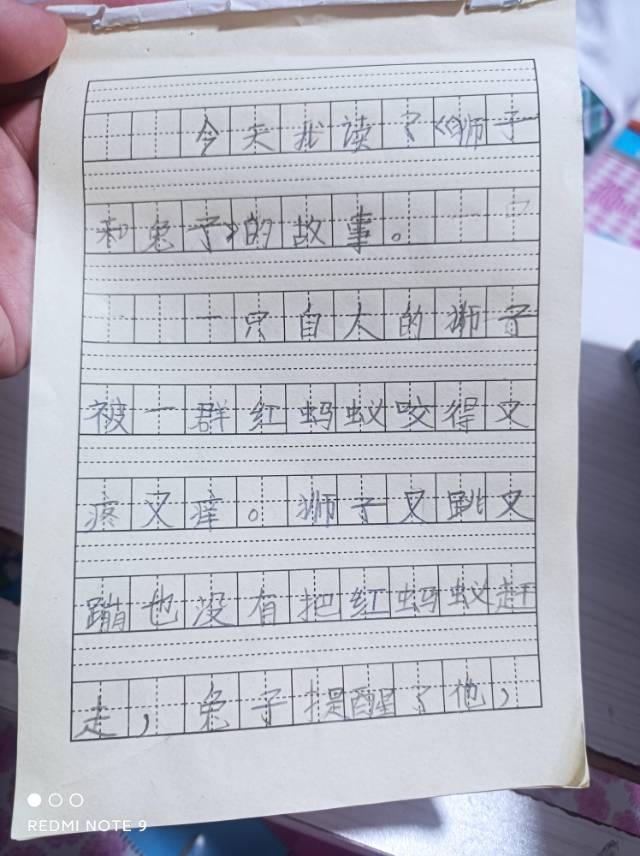 今天我读了《狮子
和兔子》的故事。
一只自人的狮子
被一群红蚂蚁咬得又
疼又痒。狮子又跳又
蹦也没有把红蚂蚁赶
走，兔子提醒了他，
REDMI NOTE 9